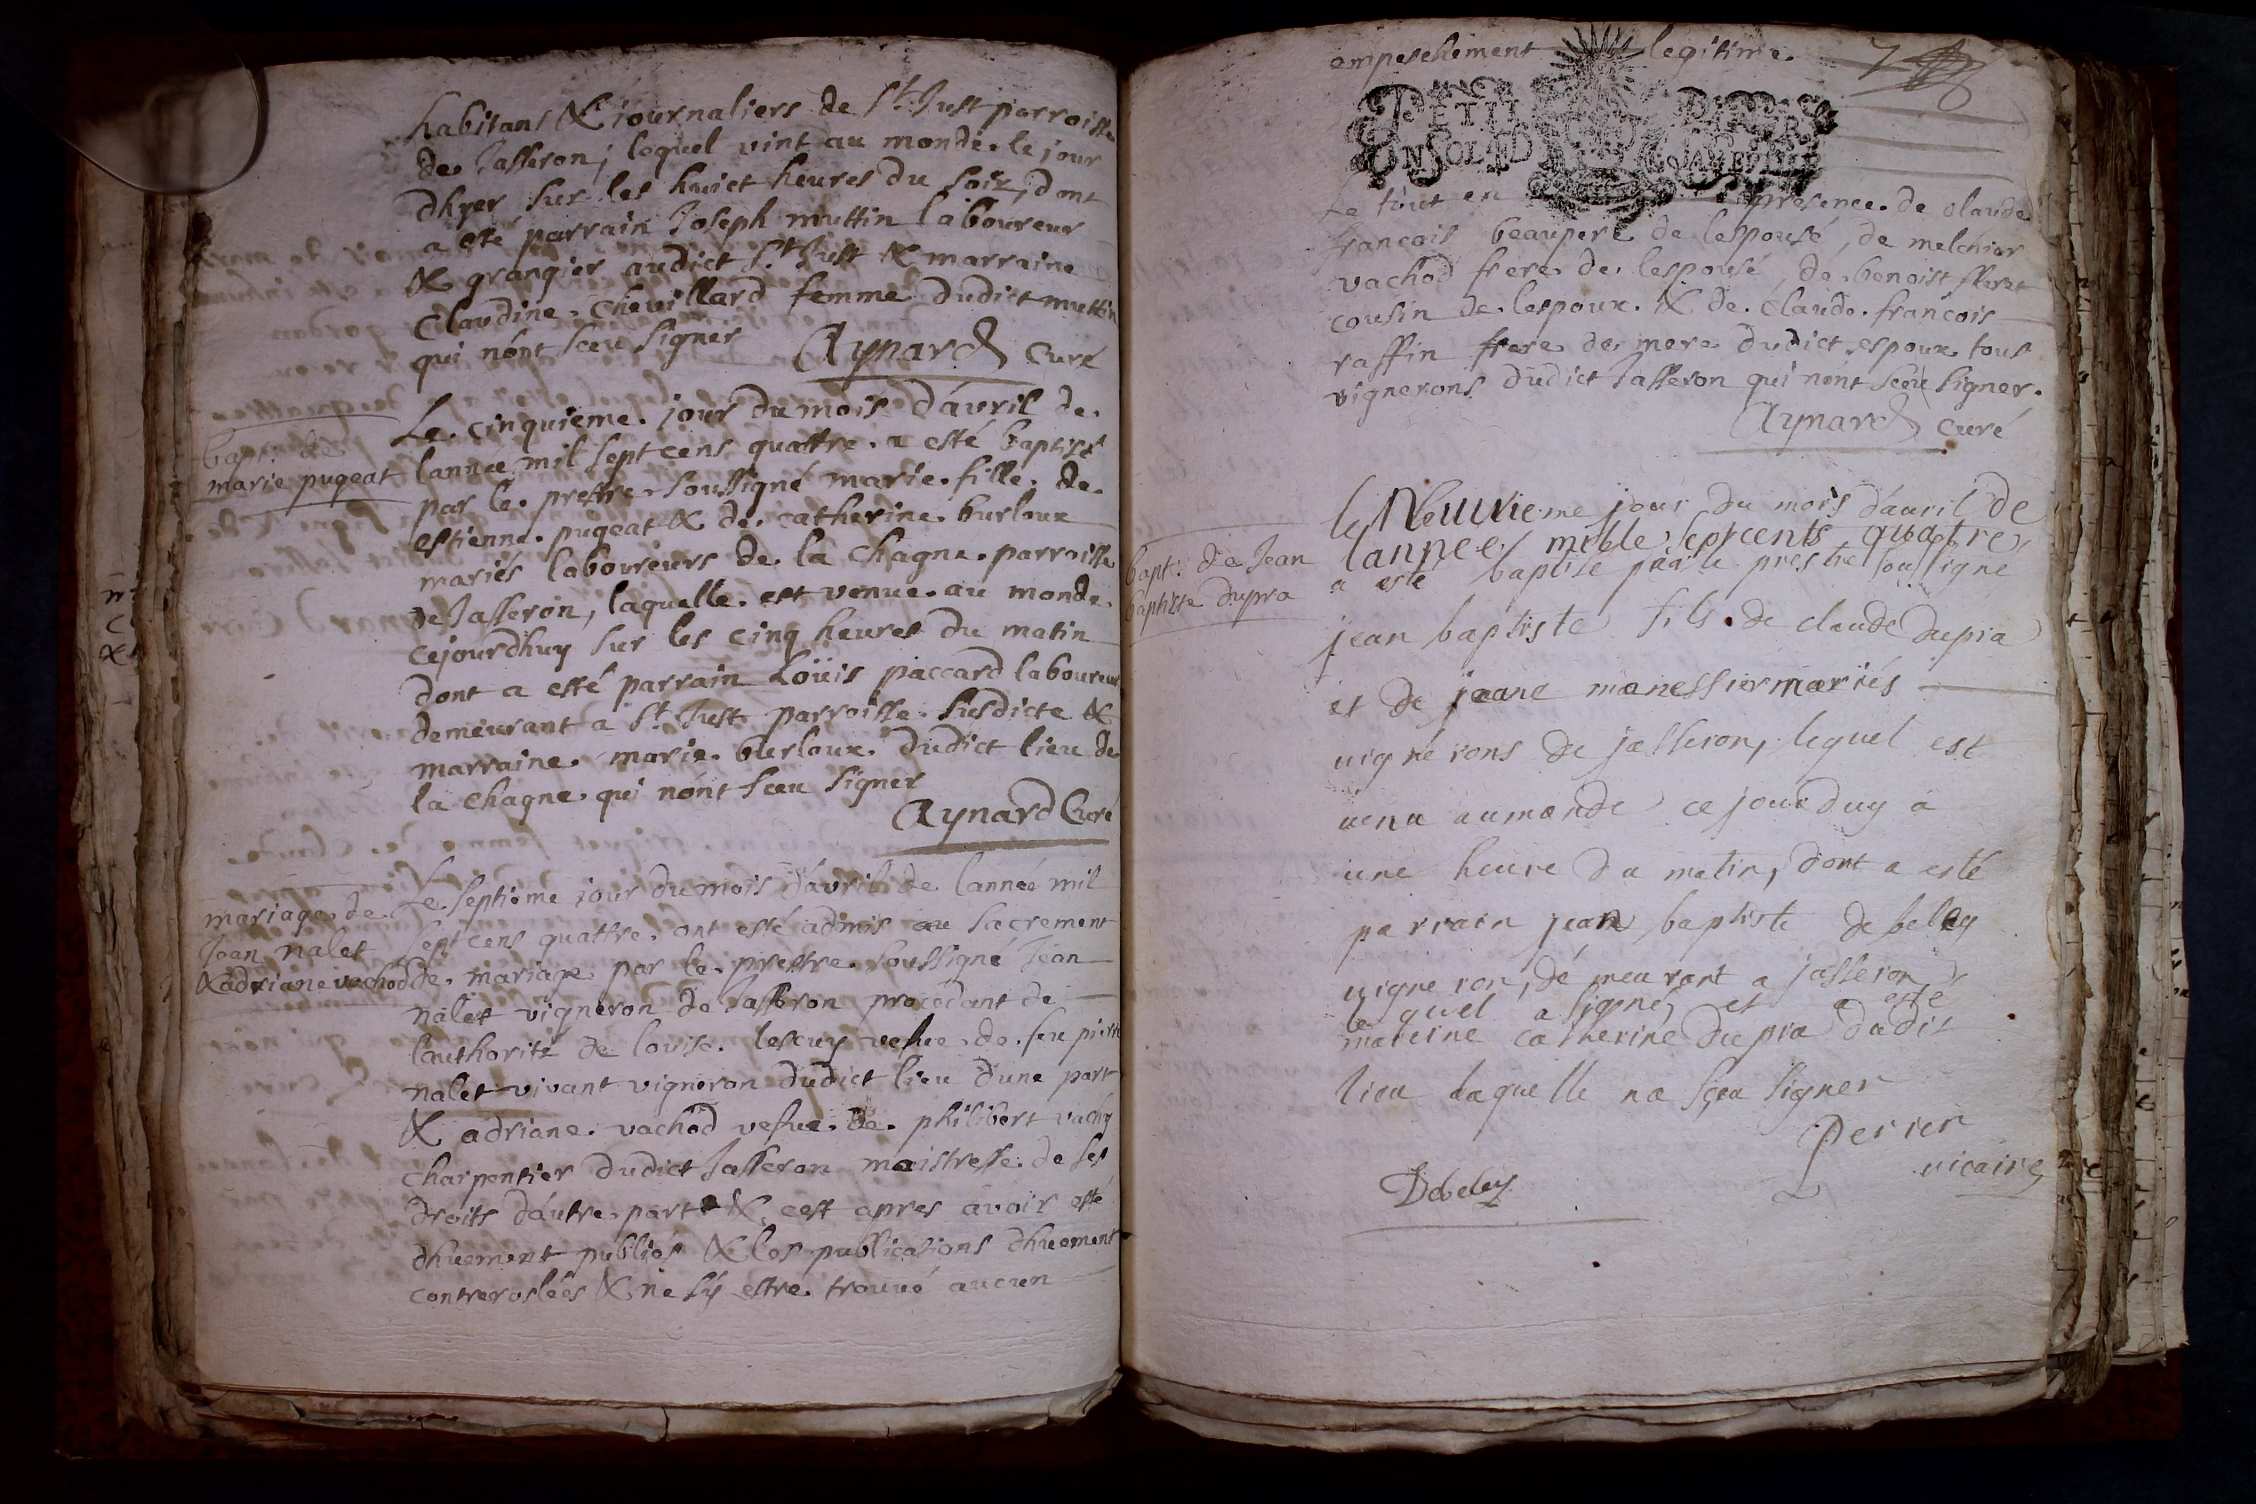 habitans & journaliers de St. Just parroisse
de Jasseron, lequel vint au monde le jour
dhyer sur les huict heures du soir, dont
a esté parrain Joseph muttin laboureur
& grangier audict St. Just & marraine
Claudine Chevillard femme dudict muttin
qui n'ónt sceu signer Aynard Curé
bapt: de
marie pugeat
Le cinquieme jour du mois d'ávril de
lannée mil sept cens quattre a esté baptisé
par le prestre soussigné marie fille de
estienne pugeat & de catherine burloux
mariés laboureurs de la Chagne parroisse
de Jasseron, laquelle est venue au monde
cejourdhuy sur les cinq heures du matin
dont a esté parrain Loüis paccard laboureur
demeurant a St. Just parroisse susdicte &
marraine marie burloux dudict lieu de
la Chagne qui nónt sceu signer
Aynard Curé
mariage de
Jean nalet
& adriane vachod
Le septieme jour du mois d'ávril de lannée mil
sept cens quattre ont esté admis au sacrement
de mariage par le prestre soussigné Jean
nalet vigneron de Jasseron procedant de
lauthorité de louise lescuy vefue de feu pierre
nalet vivant vigneron dudict lieu dune part
& adriane vachod vefue de philibert vachy
charpentier dudict Jasseron maistresse de ses
droits dáutre part & cest apres avoir esté
dhuement publiés & les publications dhuement
controroslées & ne sÿ estre trouvé aucun
empeschement legitime. 7
PETIT
Le tout en presence de claude
francois beaupere de lespousé, de melchior
vachod frere de lespousé, dé benoist
cousin de lespoux & de Claude francois
raffin frere de mere dudict espoux tous
vignerons dudict Jasseron qui nónt sceu signer.
Aynard Curé
bapt: de Jean
baptiste dupra
le Neuuieme jour du mois dauril de
lannee mille septcents quatre
a esté baptisé par le prestre soussigné
jean baptiste fils de claude dupra
et de jeane manessier mariés
uignerons de jasseron, lequel est
uenu aumonde ce jourduy a
une heure du matin, dont a esté
parrain jean baptiste de beley
uigneron, démeurant a jasseron
lequel a signé, et a esté
mareine catherine dupra dudit
lieu laquelle na sceu signer
Perrier
vicaire
Debeley